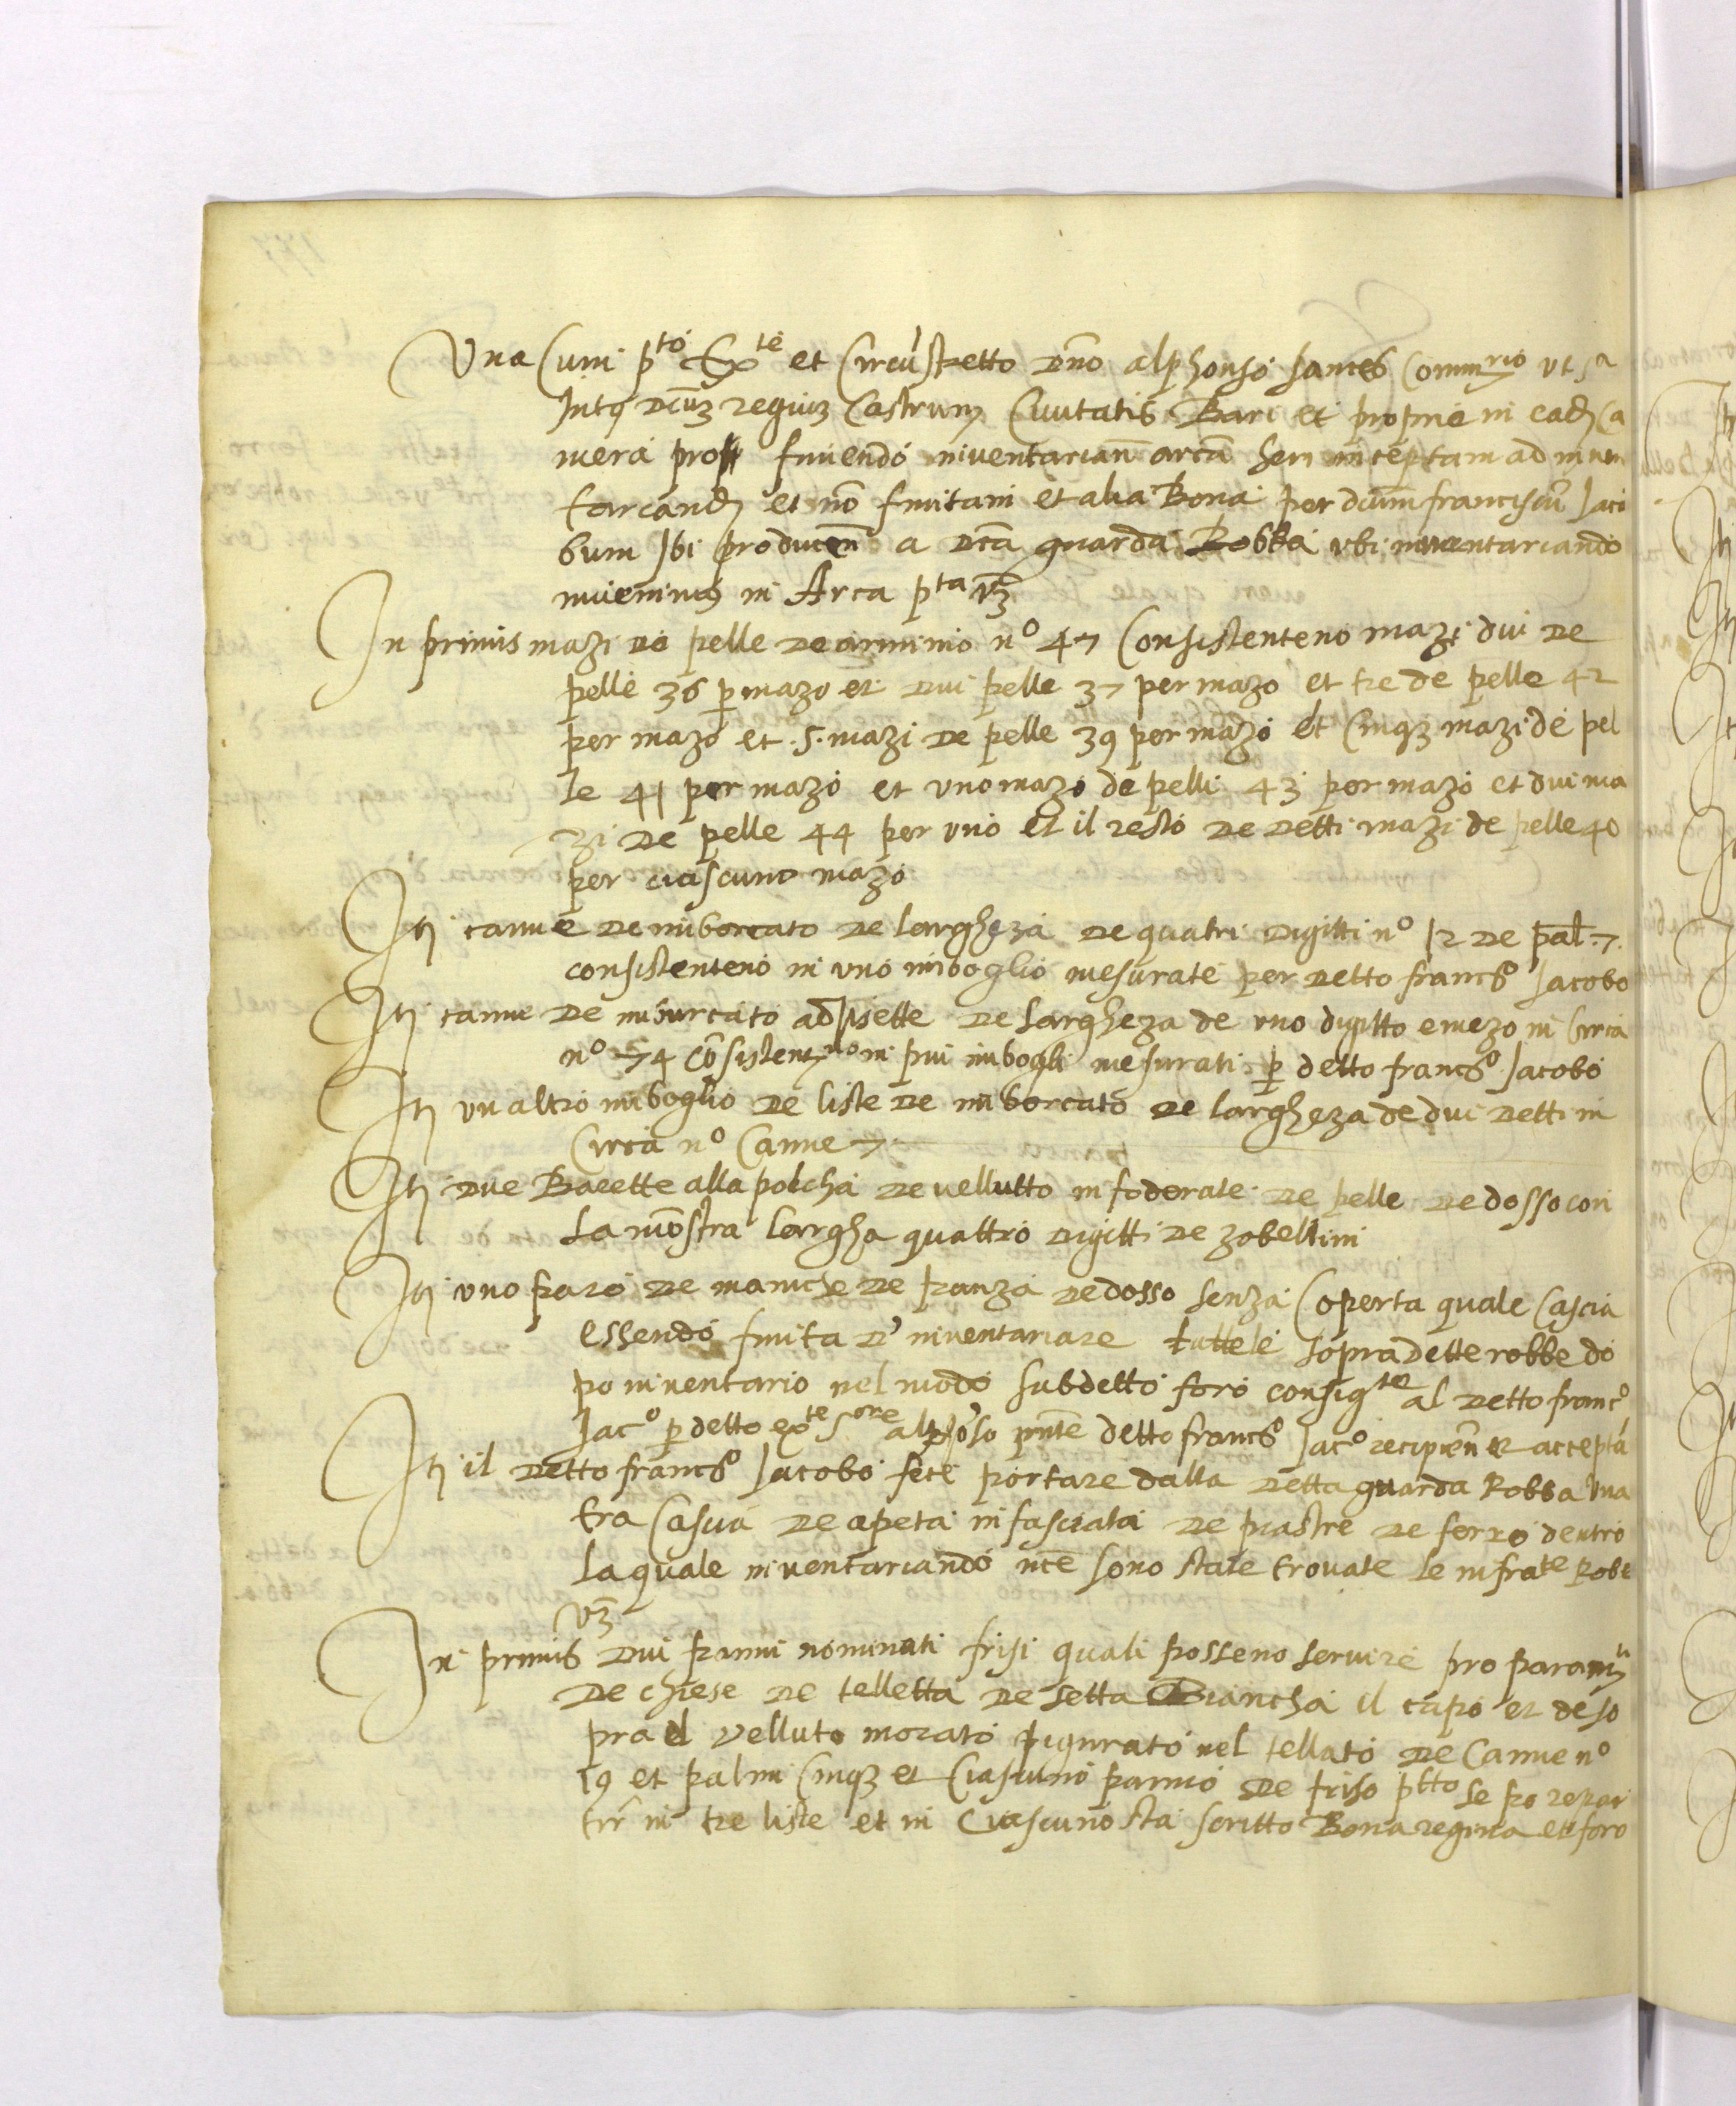 Una Cum p.to Ex.te et Circũstretto Dño alphonso sances Comm.rio ut s.a
Intq dcũz regiuz Castrum Civitatis Bari et proprie in ead Ca
mera pro finiendo inventariañ arcã heri inceptam ad inven
tariand et nõ finitam et alia Bona per dcum franciscũ Jaco
bum Ibi produceñ a Dcã guarda Robba ubi inventariando
invenimus in Arca p.ta vz
In primis mazi de pelle de arminio n.o 47 Consistenteno mazi dui de
pelle 36 p mazo et dui pelle 37 per mazo et tre de pelle 42
per mazo et .5. mazi de pelle 39 per mazo et Cinqz mazi de pel
le 41 per mazo et uno mazo de pelli 43 per mazo et dui ma
zi de pelle 44 per uno et il resto de detti mazi de pelle 40
per ciascuno mazo
Itj canne de imborcato de largheza de quatri digitti n.o 12 de pal. 7.
consistenteno in uno imboglio mesurate per detto franc.o Jacobo
Itj canne de imburcato ad lisette de largheza de uno digitto e mezo in circa
n.o 74 Cõsistenteno in piu imbogli mesurati p detto franc.o Jacobo
Itj un altro imboglio de liste de imborcato de largheza de dui detti in
Circa n.o Canne 7
Itj due Bacette alla polcha de vellutto infoderate de pelle de dosso con
la mõstra largha quattro digitti de zobellini
Itj uno paro de maniche de panza de dosso senza Coperta quale Cascia
essendo finita d' inventariare tutte le sopradette robbe do
po inventario nel modo subdetto foro consig.te al detto franc.o
Jac.o p detto ex.te s.ore alphõso pñte detto franc.o Jac.o recipieñ et acceptã
Itj il detto franc.o Jacobo fece portare dalla detta guarda Robba una
tra Cascia de apeta infasciata de piastre de ferro dentro
la quale inventariando nce sono state trovate le infra.te Robe
vz
In primis dui panni nominati frisi quali posseno servire pro param.ti
de chiese de telletta de setta Biancha il capo et de so
pra el velluto morato figurato nel tellato de Canne n.o
19 et palmi Cinqz et Ciascuno panno de friso p.tto se po repar
tir in tre liste et in Ciascuno sta scritto Bona regina et foro